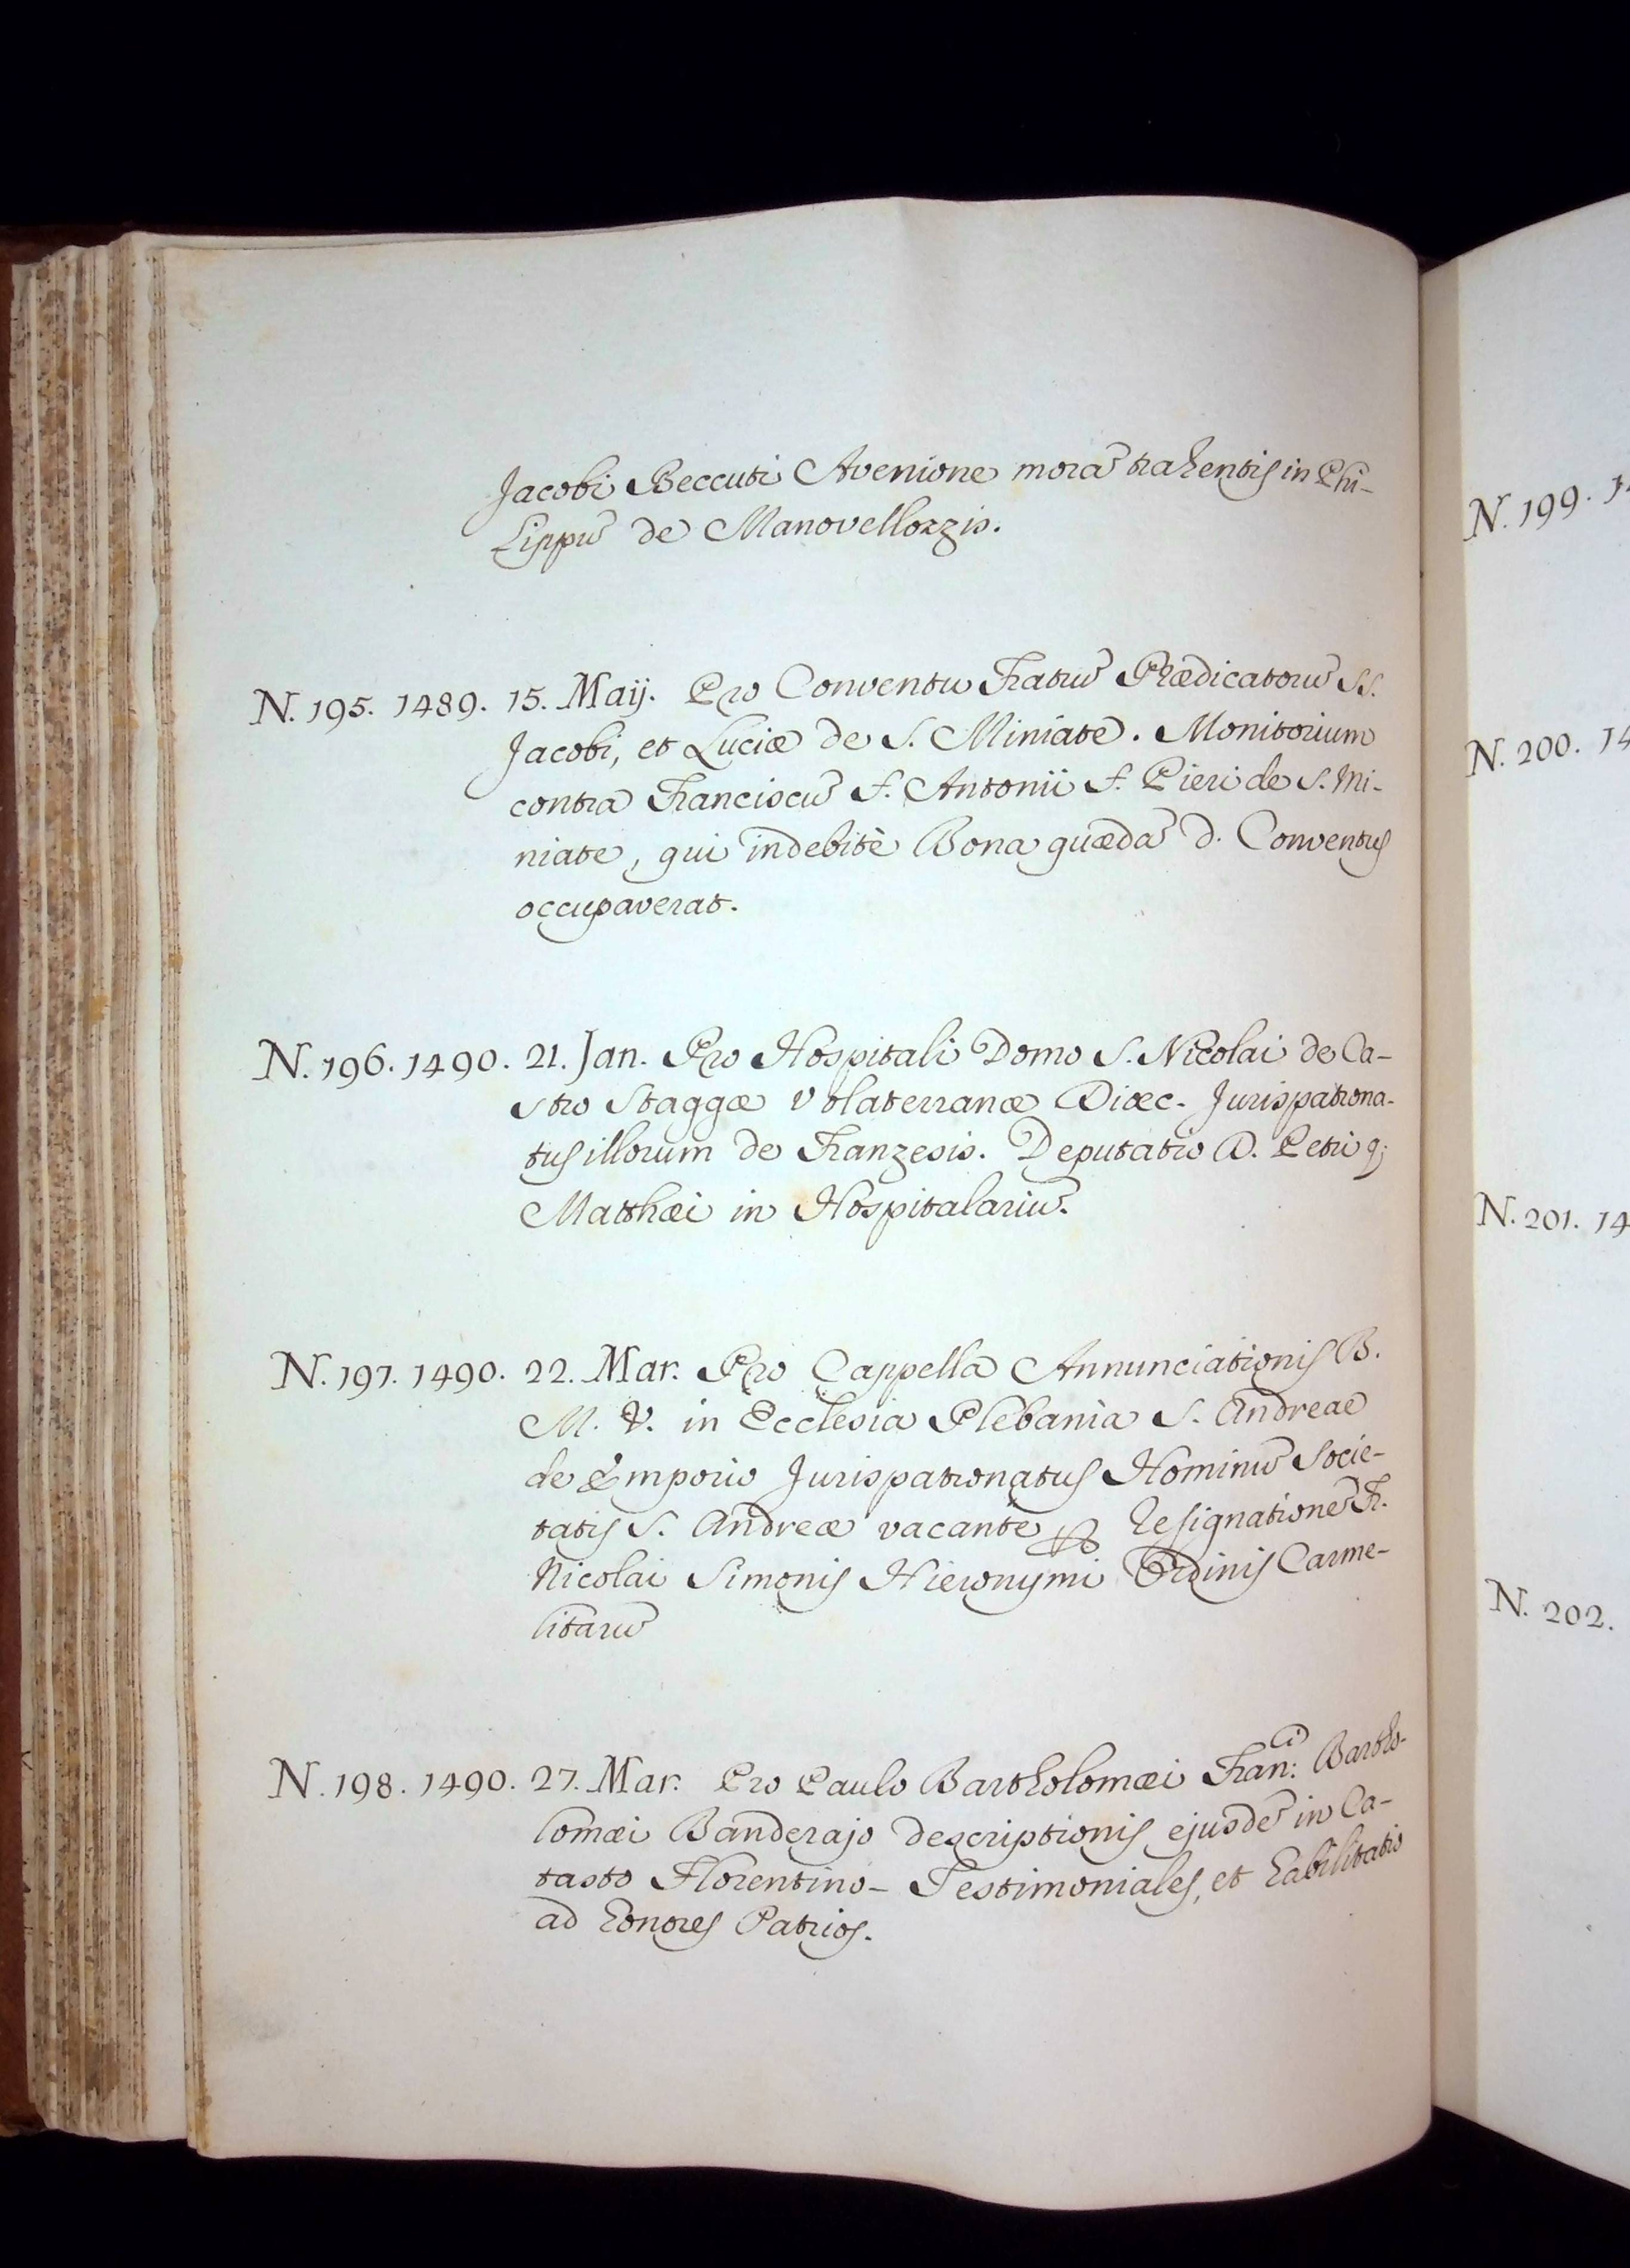 Jacobi Beccuti Avenione morã trahentis in Phi-
lippũ de Manovellozzis.
N. 195. 1489. 15. Maij. Pro Conventu Fratrũ Prædicatorũ SS.
Jacobi, et Luciæ de S. Miniate. Monitorium
contra Franciscũ f. Antonii f. Pieri de S. Mi-
niate, qui indebitè Bona quædã d. Conventus
occupaverat.
N. 196. 1490. 21. Jan. Pro Hospitali Domo S. Nicolai de Ca-
stro Staggæ Volaterranæ Diœc. Jurispatrona-
tus illorum de Franzesis. Deputatio D. Petri q;
Matthæi in Hospitalariũ.
N. 197. 1490. 22. Mar. Pro Cappella Annunciationis B.
M. V. in Ecclesia Plebania S. Andreae
de Emporio Jurispatronatus Hominũ Socie-
tatis S. Andreæ vacante ꝑ Resignationẽ Fr.
Nicolai Simonis Hieronymi Ordinis Carme-
litarũ
N. 198. 1490. 27. Mar. Pro Paulo Bartholomæi Fran:ci Bartho-
lomæi Banderajo descriptionis ejusdẽ in Ca-
tasto Florentino- Testimoniales, et habilitatio
ad honores Patrios.
N. 199. 1
N. 200. 14
N. 201. 14
N. 202.